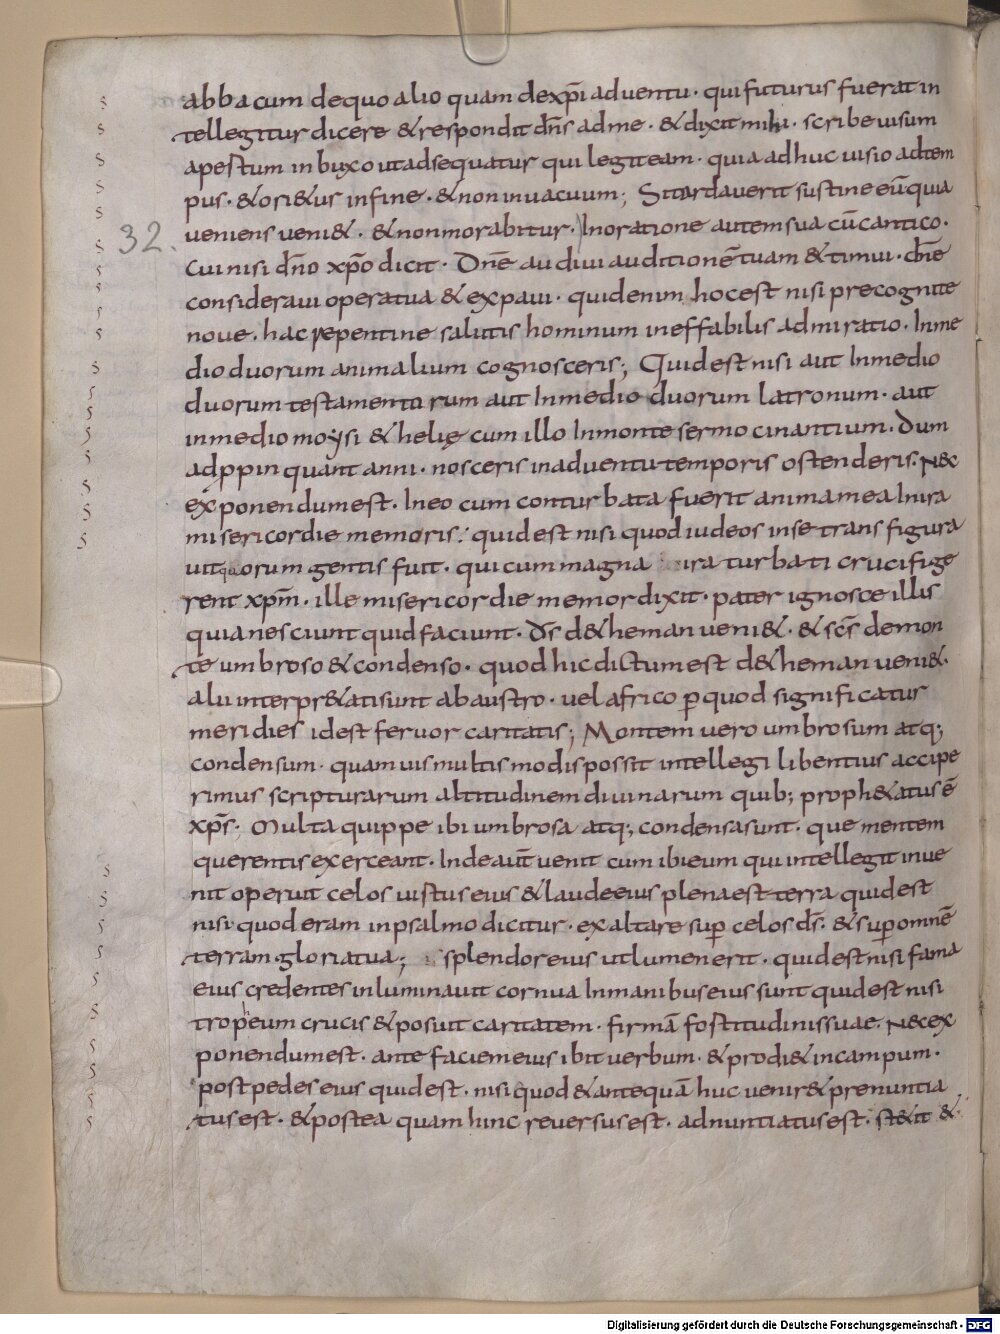 abbacum dequo alio quam dexp̄i aduentu· quifuturus fuerat in
tellegitur dicere & respondit dn̄s adme· & dixit mihi· scribe uisum
apestum in buxo utadsequatur qui legit eam· quia adhuc uisio adtem
pus· & ori&us infine· & non inuacuum; Sitardauerit sustine eū quia
32.
ueniens ueni&· & nonmorabitur· Inoratione autem sua cū cantico·
Cui nisi dn̄o xp̄o dicit· Dn̄e audiui auditionē tuam & timui· dn̄e
consideraui opera tua & expaui· quidenim hocest nisi precognite
noue· hac repentine salutis hominum ineffabilis admiratio· Inme
dio duorum animalium cognosceris; Quid est nisi aut Inmedio
duorum testamentorum aut Inmedio duorum latronum· aut
inmedio moysi & helię cum illo Inmonte sermocinantium· Dum
adp̱pinquant anni· nosceris inaduentu temporis ostenderis· Nec
exponendumest· Ineo cum conturbata fuerit anima mea Inira
misericordie memoris: quid est nisi quod iudeos inse transfigura
uit quorum gentis fuit· qui cum magna ira turbati crucifige
rent xp̄m· ille misericordie memor dixit· pater ignosce illis
quia nesciunt quid faciunt· D̄s d&heman ueni&· & sc̄s demon
te umbroso & condenso· quod hic dictum est d&heman ueni&·
alii interpr&atisunt abaustro· uel africo p̱ quod significatur
meridies idest feruor caritatis; Montem uero umbrosum atq;
condensum· quamuis multis modis possit intellegi libentius accipe
rimus scripturarum altitudinem diuinarum quib; proph&atus ē
xp̄s· Multa quippe ibi umbrosa atq; condensa sunt· que mentem
querentis exerceant· Inde aūt uenit cum ibi eum qui intellegit inue
nit operuit celos uistus eius & laude eius plena est terra quid est
nisi quod eram inpsalmo dicitur· exaltare sup̱ celos ds̄· & sup̱ omnē
terram gloria tua; splendor eius utlumen erit· quid est nisi fama
eius credentes inluminauit cornua Inmanibus eius sunt quid est nisi
tropeum crucis & posuit caritatem· firmā fostitudinis suae· Necex
ponendumest· ante faciem eius ibit uerbum· & prodi& incampum·
post pedes eius quid est· nisi quod & antequā huc uenir& prenuntia
tus est· & postea quam hinc reuersus est· adnuntiatus est· st&it &
Digitalisierung gefördert durch die Deutsche Forschungsgemeinschaft · DFG